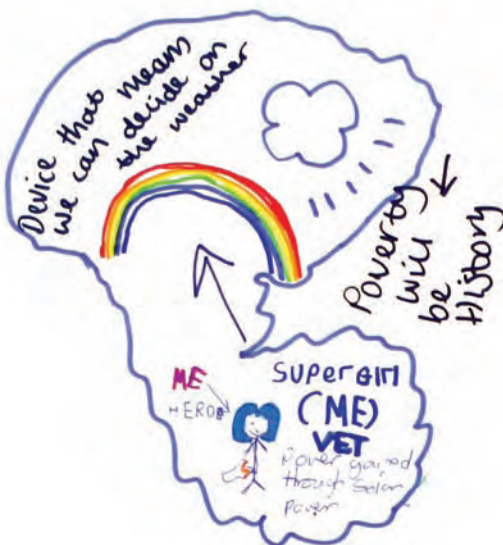 Device that means
we can decide on
the weather
Poverty
will
be
History
ME
HERO
Supergirl
(ME)
VET
Power gained
through Solar
Power